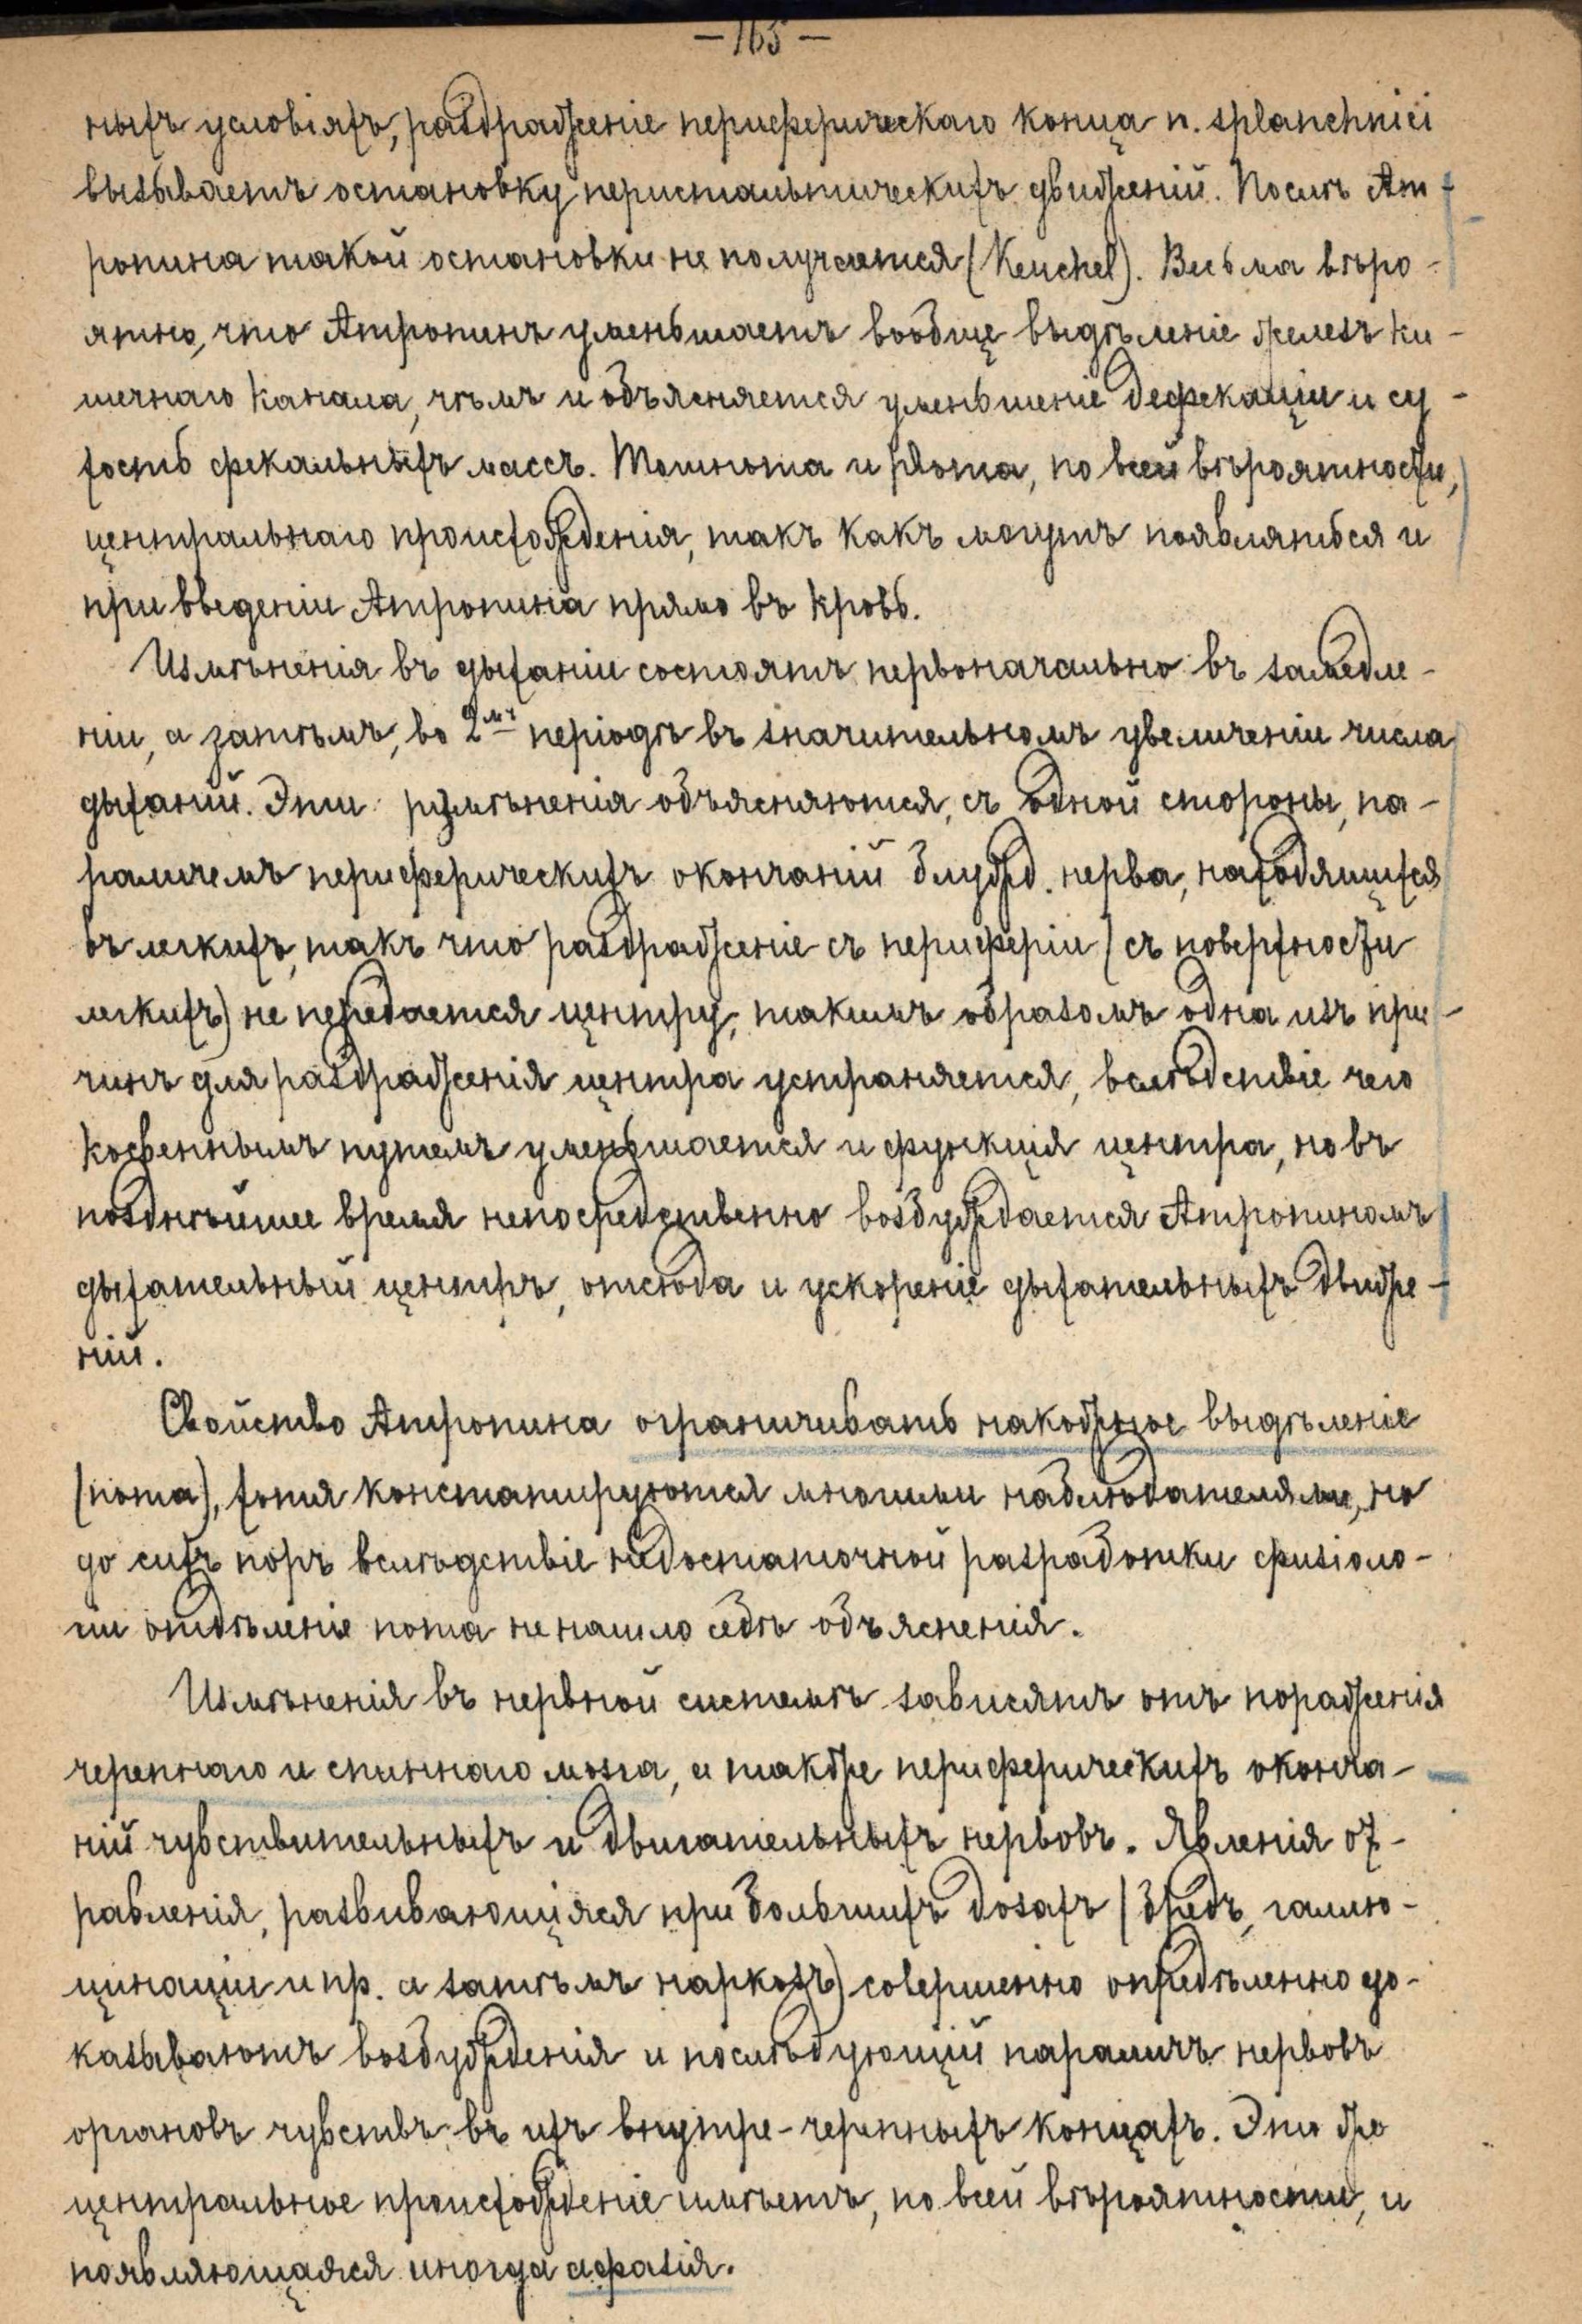 — 165 —
ныхъ условіяхъ, раздраженіе периферическаго конца n. splanchnici
вызываетъ остановку перистальтическихъ движеній. Послѣ Ат-
ропина такой остановки не получается (Keuchel). Весьма вѣро-
ятно, что Атропинъ уменьшаетъ вообще выдѣленіе железъ ки-
шечнаго канала, чѣмъ и объясняется уменьшеніе дефекаціи и су-
хость фекальныхъ массъ. Тошнота и рвота, по всей вѣроятности,
центральнаго происхожденія, такъ какъ могутъ появляться и
при введеніи Атропина прямо въ кровь.
Измѣненія въ дыханіи состоятъ первоначально въ замедле-
ніи, а затѣмъ, во 2мъ періодѣ въ значительномъ увеличеніи числа
дыханій. Эти измѣненія объясняются, съ одной стороны, па-
раличемъ периферическихъ окончаній блужд. нерва, находящихся
въ легкихъ, такъ что раздраженіе съ периферіи (съ поверхности
легкихъ) не передается центру; такимъ образомъ одна изъ при-
чинъ для раздраженія центра устраняется, вслѣдствіе чего
косвеннымъ путемъ уменьшается и функція центра, но въ
позднѣйшее время непосредственно возбуждается Атропиномъ
дыхательный центръ, отсюда и ускореніе дыхательныхъ движе-
ній.
Свойство Атропина ограничивать накожное выдѣленіе
(пота), хотя констатируются многими наблюдателями, но
до сихъ поръ вслѣдствіе недостаточной разработки физіоло-
гіи отдѣленіе пота не нашло себѣ объясненія.
Измѣненія въ нервной системѣ зависятъ отъ пораженія
черепнаго и спиннаго мозга, а также периферическихъ оконча-
ній чувствительныхъ и двигательныхъ нервовъ. Явленія от-
равленія, развивающіяся при большихъ дозахъ (бредъ, галлю-
цинаціи и пр. а затѣмъ наркозъ) совершенно опредѣленно до-
казываютъ возбужденія и послѣдующій параличъ нервовъ
органовъ чувствъ въ ихъ внутре-черепныхъ концахъ. Это же
центральное происхожденіе имѣетъ, по всей вѣроятности, и
появляющаяся иногда афазія.